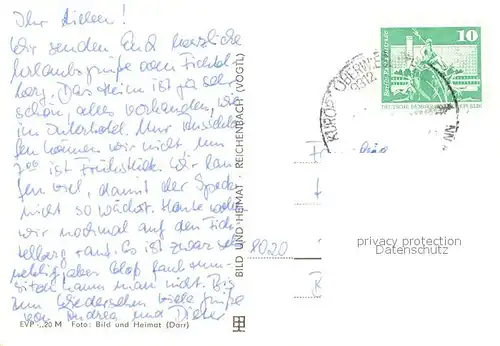 Ihr Lieben!
Wir senden Euch herzliche
Urlaubsgrüße vom Fichtel-
berg. Das Heim ist ja sehr
schön, alles vorhanden, wie
im Interhotel. Nur
können wir nicht, um
7⁰⁰ ist Frühstück. Wir lau-
fen viel, damit der Speck
nicht so wächst. Heute wollen
wir nochmal auf den Fich-
telberg rauf. Es ist zwar sehr
neblig, aber bloß faul rum-
sitzen kann man nicht. Bis
zum Wiedersehen viele Grüße
von Andrea und Dieter
EVP -,20 M Foto: Bild und Heimat (Darr)
BILD UND HEIMAT · REICHENBACH (VOGTL)
10
DEUTSCHE DEMOKRATISCHE REPUBLIK
KURORT OBERWIE
9312
8020
privacy protection
Datenschutz